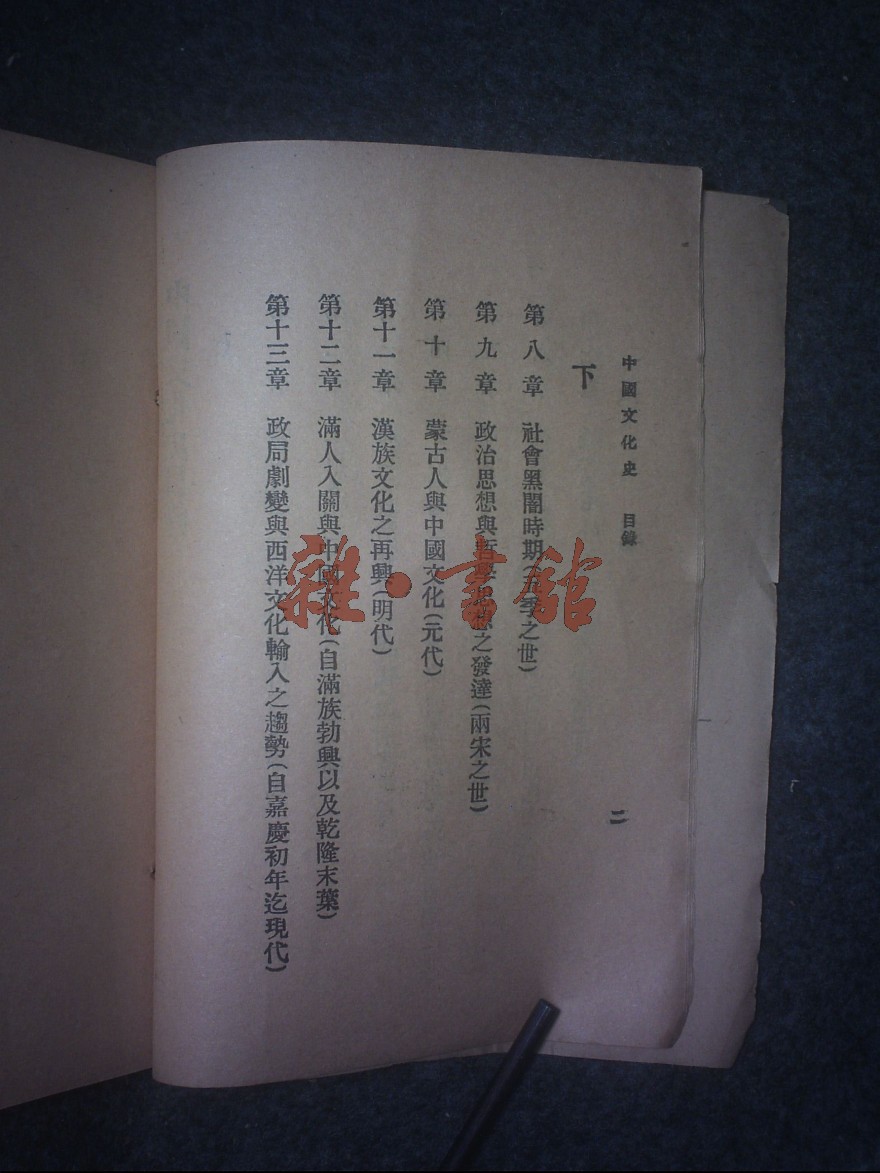 中國文化史 目錄
二
下
第八章 社會黑闇時期(五季之世)
第九章 政治思想與哲學思想之發達(兩宋之世)
第十章 蒙古人與中國文化(元代)
第十一章 漢族文化之再興(明代)
第十二章 滿人入關與中國文化(自滿族勃興以及乾隆末葉)
第十三章 政局劇變與西洋文化輸入之趨勢(自嘉慶初年迄現代)
雜·書館